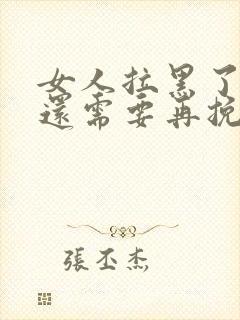 女人拉黑了
還需要再挽
張丕杰